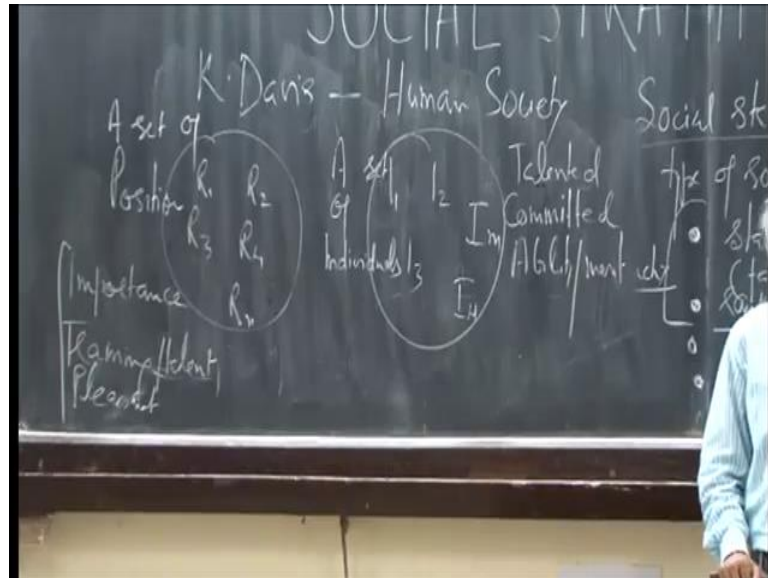 SOCIAL STRATI
K. Davis — Human Society
A set of
Position
R1 R2
R3 R4
Rn
Importance
Training/talent,
Pleasant
A set
of
Individuals
I1 I2
Im
I3
In
Talented
Committed
Ability/merit
Social st
type of so
sta